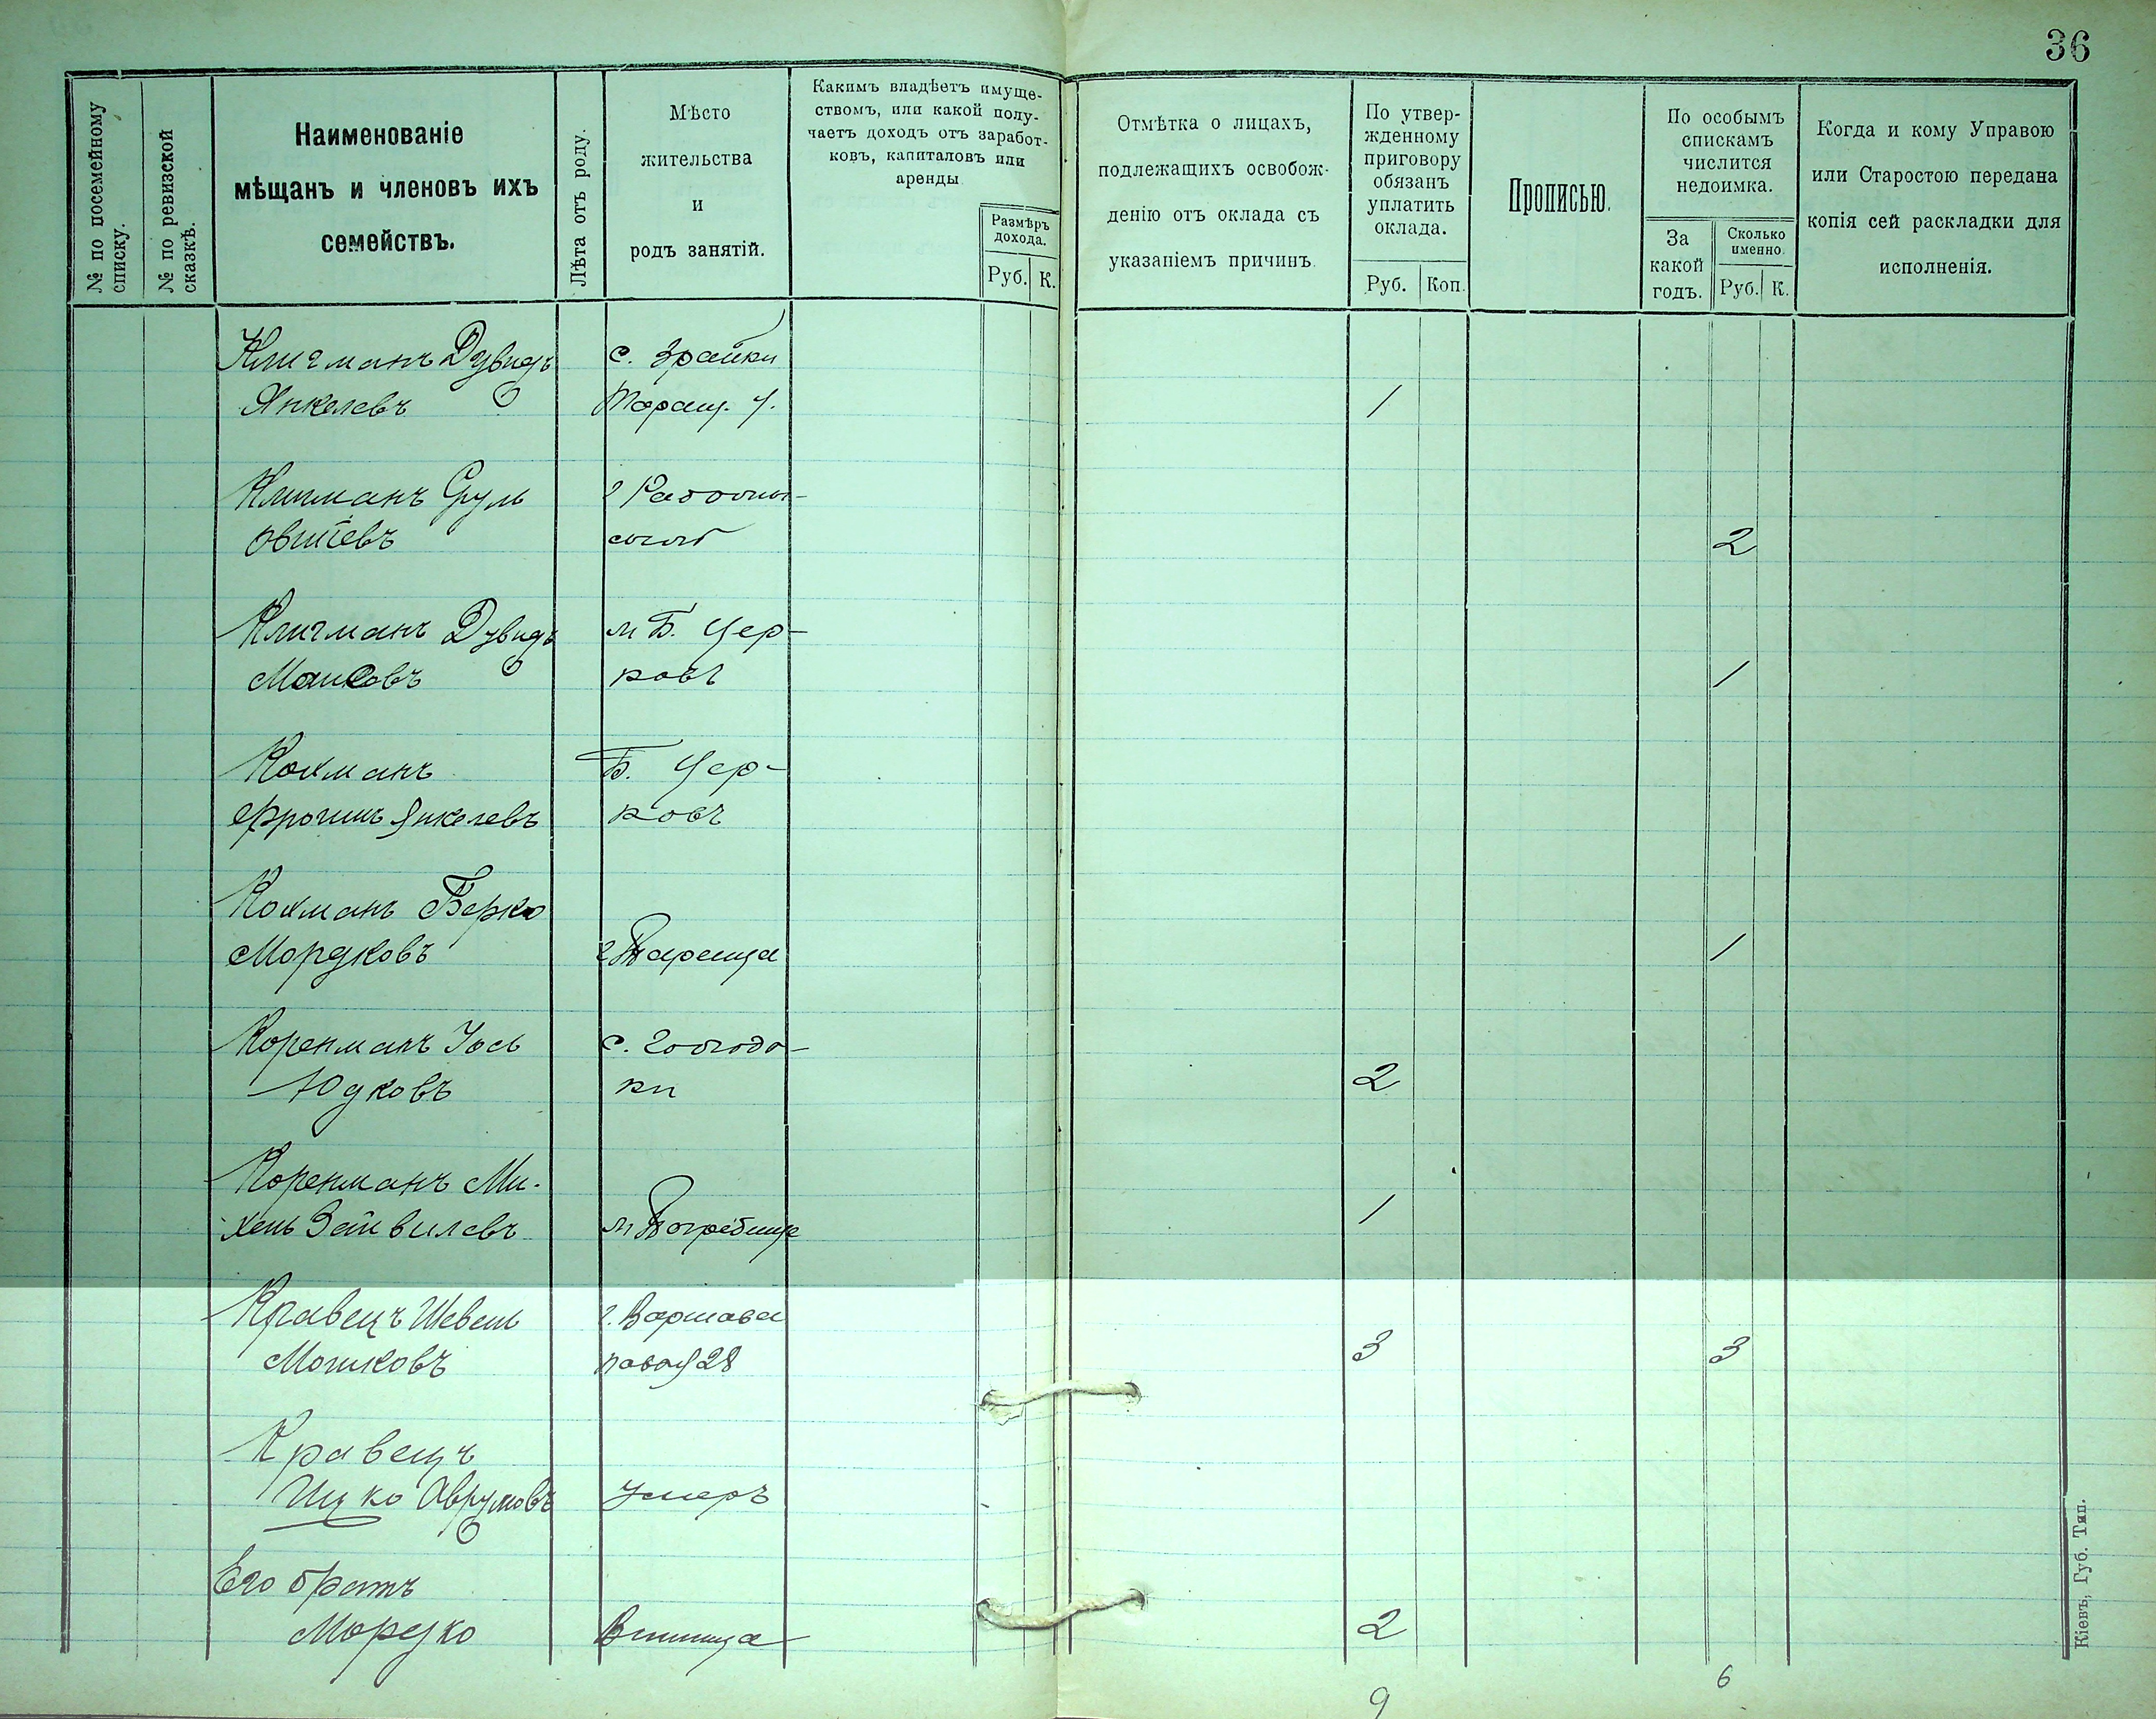 36
№ по посемейному списку.
№ по ревизской сказкѣ.
Наименованіе
мѣщанъ и членовъ ихъ
семействъ.
Лѣта отъ роду.
Мѣсто
жительства
и
родъ занятій.
Какимъ владѣетъ имуще-
ствомъ, или какой полу-
чаетъ доходъ отъ заработ-
ковъ, капиталовъ или
аренды
Размѣръ
дохода.
Руб. К.
Отмѣтка о лицахъ,
подлежащихъ освобож-
денію отъ оклада съ
указаніемъ причинъ.
По утвер-
жденному
приговору
обязанъ
уплатить
оклада.
Руб. Коп.
Прописью.
По особымъ
спискамъ
числится
недоимка.
За
какой
годъ.
Сколько
именно.
Руб. К.
Когда и кому Управою
или Старостою передана
копія сей раскладки для
исполненія.
Клигманъ Дувидъ с. Зрайки
Янкелевъ Таращ. у. 1
Клигманъ Сруль г
2
Клигманъ Дувидъ м Б. Цер-
Мошковъ ковь 1
Кохманъ Б. Цер-
Фроимъ Янкелевъ ковь
Кохманъ Берко
Мордковъ г Тараща 1
Коренманъ Іось с.
Юдковъ ки 2
Коренманъ Ми-
хель Зейвилевъ м Погребище 1
Кравецъ Шевель г. Варшава
Мошковъ новая 28 3 3
Кравецъ
Ицко Аврумовъ умеръ
Его братъ
Мордко Винница 2
9 6
Кіевъ, Губ. Тип.